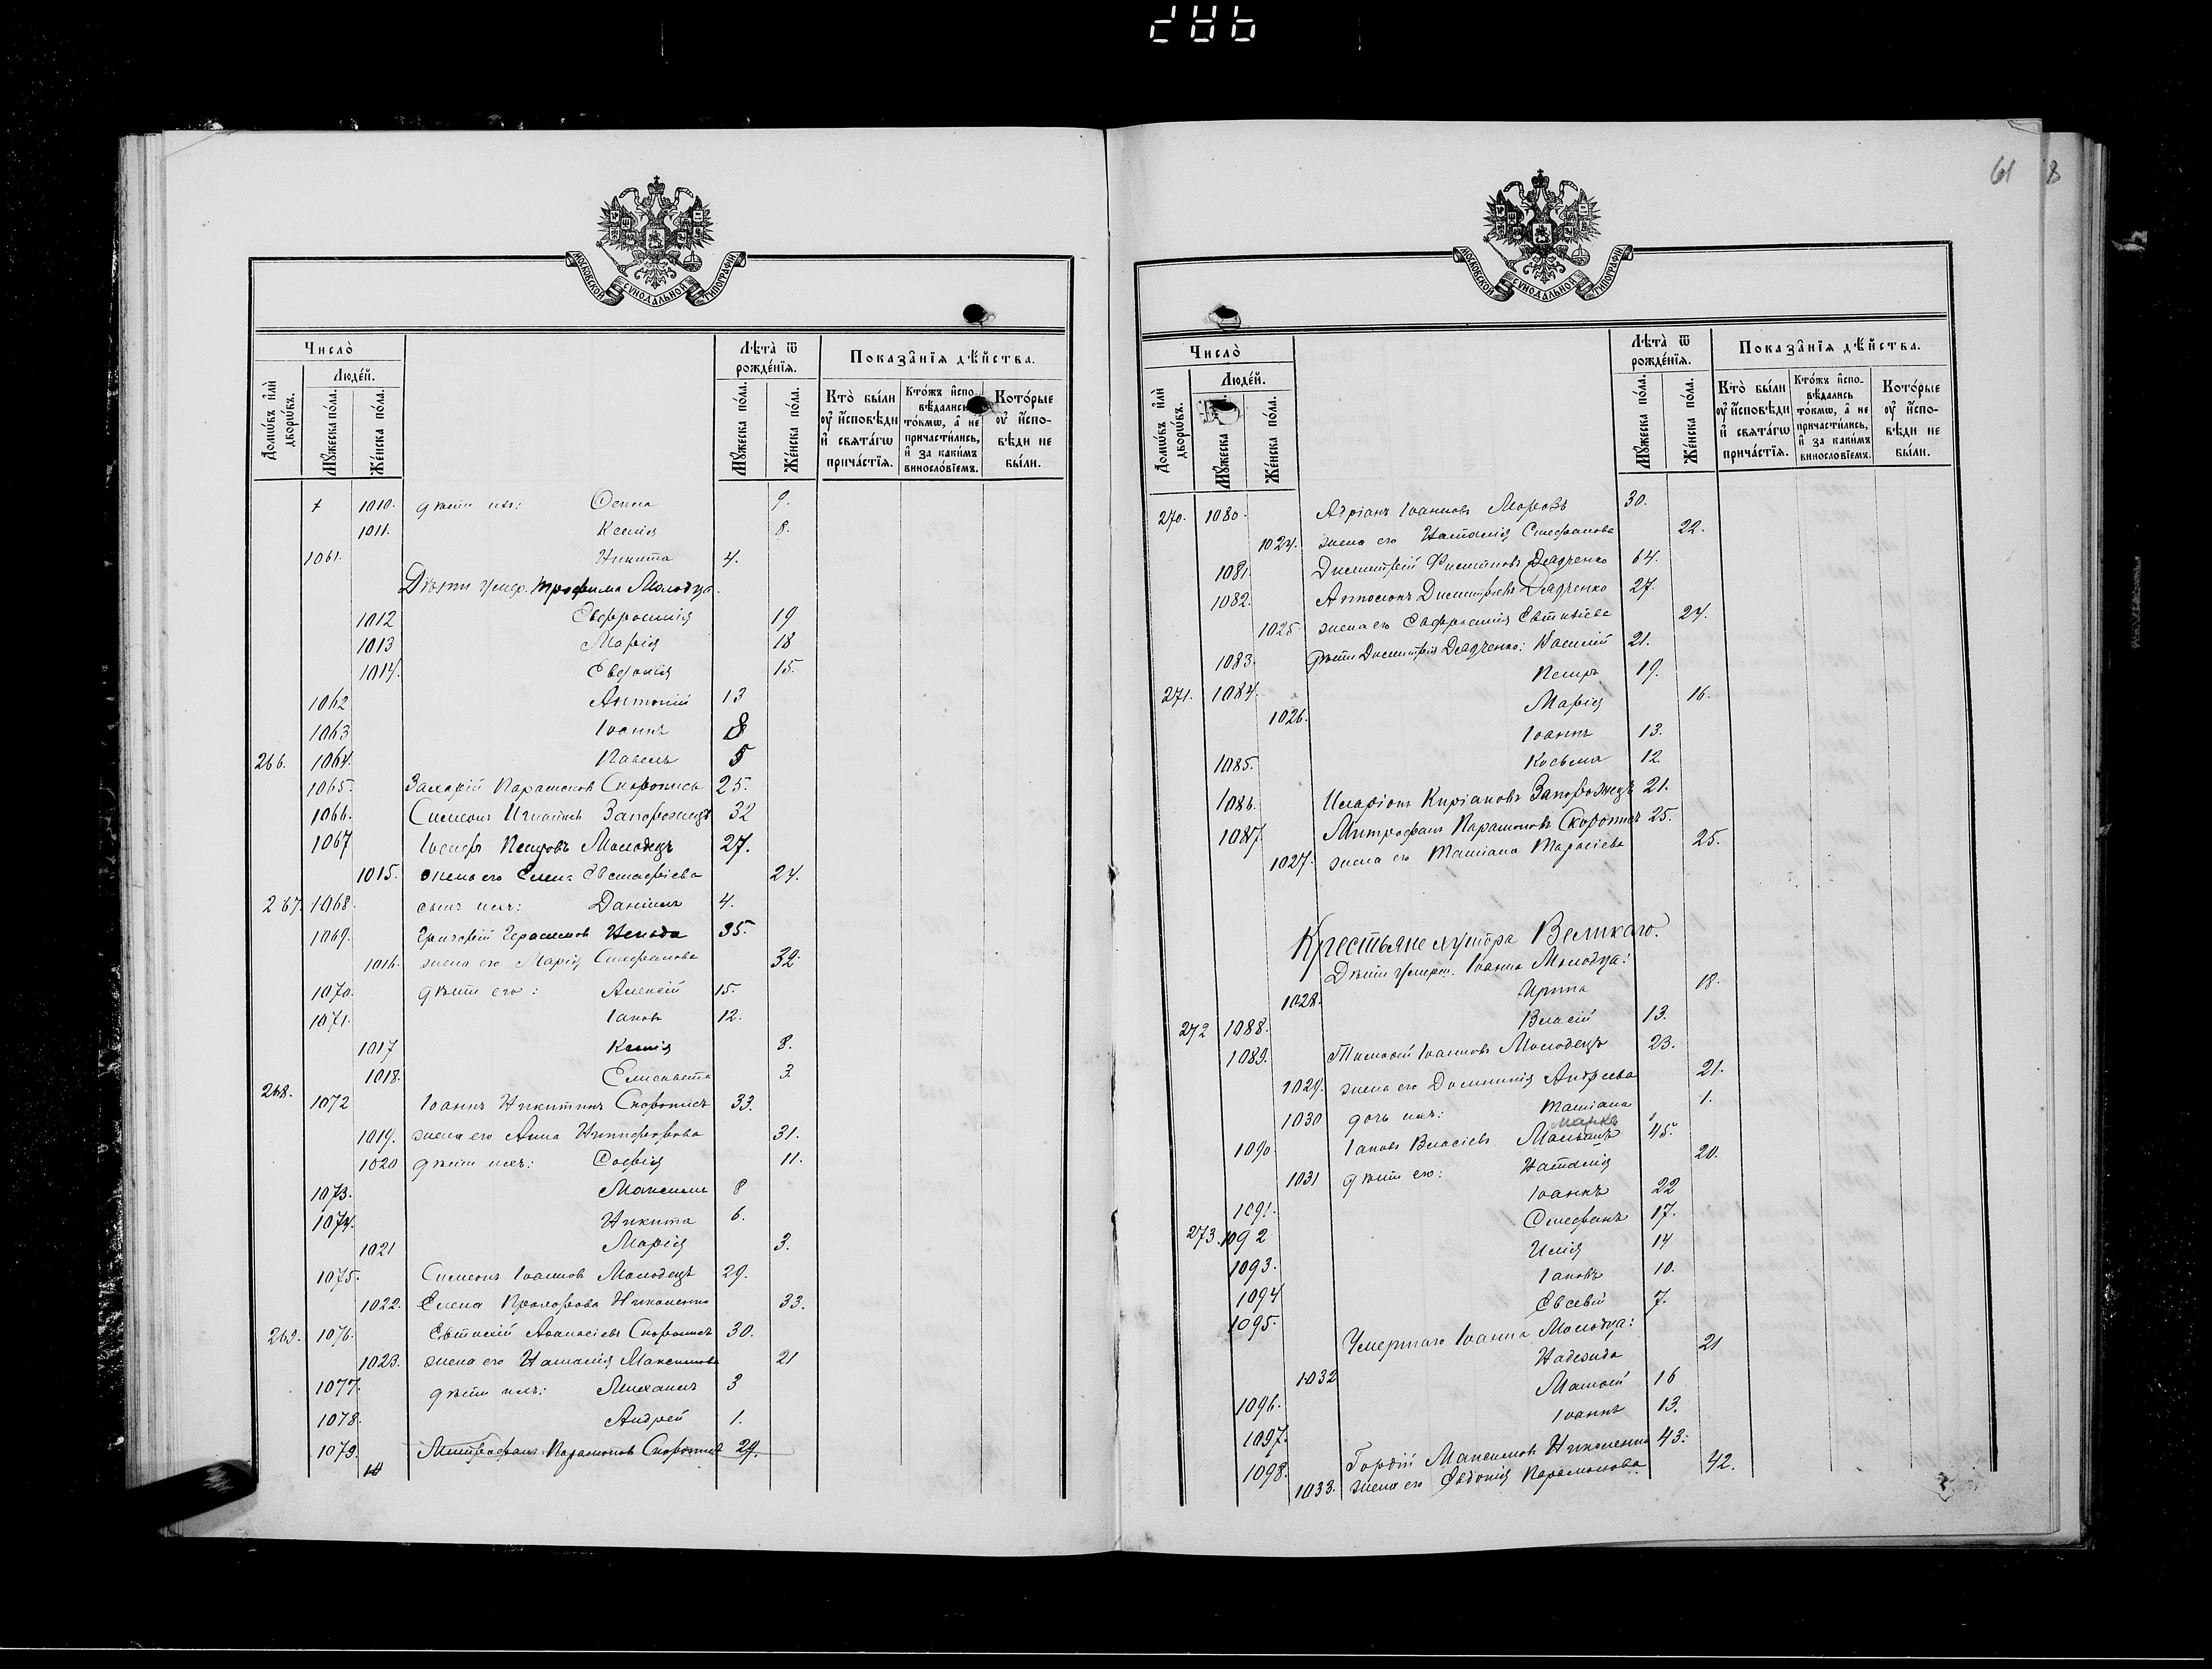 61 8
МОСКОВСКОЙ СѴНОДАЛЬНОЙ ТИПОГРАФІИ
Число̀
Домѡ́въ и҆лѝ дворѡ́въ.
Люде́й.
Мꙋ́жеска по́ла.
Же́нска по́ла.
Лѣта̀ ѿ рожде́нїѧ.
Мꙋ́жеска по́ла.
Же́нска по́ла.
Показа̑нїѧ дѣ́йства.
Кто̀ бы́ли ᲂу҆ и҆́сповѣди и҆ свѧта́гѡ прича́стїѧ.
Кто́жъ и҆спо- вѣ́дались то́кмѡ, а҆ не причасти́лись, и҆ за каки́мъ винослов́їемъ.
Кото́рые ᲂу҆ и҆спо- вѣди не бы́ли.
1010. дѣти ихъ: 9.
1011. Ксенія 8.
1061. Никита 4.
Дѣти умер. Трофима Молодца.
1012 Евфросинія 19
1013 Марія 18
1014. Евдокія 15.
1062 Антоній 13
1063 Іоаннъ 8
266. 1064. Павелъ 5
1065. Захарій Парамоновъ Скоропись 25.
1066. Симеонъ Игнатіевъ Запорожецъ 32
1067 Іосифъ Петровъ Молодецъ 27.
1015. жена его Елена Евстафіева 24.
267. 1068. сынъ ихъ: Даніилъ 4.
1069. Григорій Герасимовъ 35.
1016. жена его Марія Стефанова 32.
1070. дѣти его: Алексій 15.
1071. Іаковъ 12.
1017 Ксенія 8.
1018. Елисавета 3.
268. 1072 Іоаннъ Никитинъ Скорописъ 33.
1019. жена его Анна Никифорова 31.
1020 дѣти ихъ: Софія 11.
1073. Максимъ 8
1074. Никита 6.
1021 Марія 3.
1075. Симеонъ Іоанновъ Молодецъ 29.
1022. Елена Прохорова Николенко 33.
269. 1076. Евтихій Аѳанасіевъ Скорописъ 30.
1023. жена его Наталія Максимова 21
1077. дѣти ихъ: Михаилъ 3
1078. Андрей 1.
1079. Митрофанъ Парамоновъ Скорописъ 24.
10
МОСКОВСКОЙ СѴНОДАЛЬНОЙ ТИПОГРАФІИ
Число̀
Домѡ́въ и҆лѝ дворѡ́въ.
Люде́й.
Мꙋ́жеска
Же́нска по́ла.
Лѣта̀ ѿ рожде́нїѧ.
Мꙋ́жеска по́ла.
Же́нска по́ла.
Показа̑нїѧ дѣ́йства.
Кто̀ бы́ли ᲂу҆ и҆́сповѣди и҆ свѧта́гѡ прича́стїѧ.
Кто́жъ и҆спо- вѣ́дались то́кмѡ, а҆ не причасти́лись, и҆ за каки́мъ винослов́їемъ.
Кото́рые ᲂу҆ и҆спо- вѣди не бы́ли.
270. 1080. Адріанъ Іоанновъ Морозъ 30.
1024. жена его Наталія Стефанова 22.
1081. Димитрій Дядченко 64.
1082. Димитріевъ Дядченко 27.
1025. жена его Евфросинія Евтихіева 24.
1083. дѣти Димитрія Дядченко: Василій 21.
271. 1084. Петръ 19.
1026. Марія 16.
Іоаннъ 13.
1085. Косьма 12.
1086. Иларіонъ Кирiаковъ Запорожецъ 21.
1087 Митрофанъ Парамоновъ Скорописъ 25.
1027. жена его Татіана Тарасіева 25.
Крестьяне хутора Великаго.
Дѣти умерш. Іоанна Молодца:
1028. Ирина 18.
272 1088. Власій 13.
1089. Тимоѳей Іоанновъ Молодецъ 23.
1029. жена его Домникія Андреева 21.
1030 дочь ихъ: Татіана 1.
1090. Іаковъ Власіевъ 45.
1031 дѣти его: Наталія 20.
1091. Іоаннъ 22
273. 1092 Стефанъ 17.
1093. Илія 14
1094 Іаковъ 10.
1095. Евсевій 7.
Умершаго Іоанна Молодца:
1032 Надежда 21
1096. Матѳей 16
1097. Іоаннъ 13.
1098. Гордій Максимовъ Николенко 43.
1033. жена его Евдокія Парамонова 42.